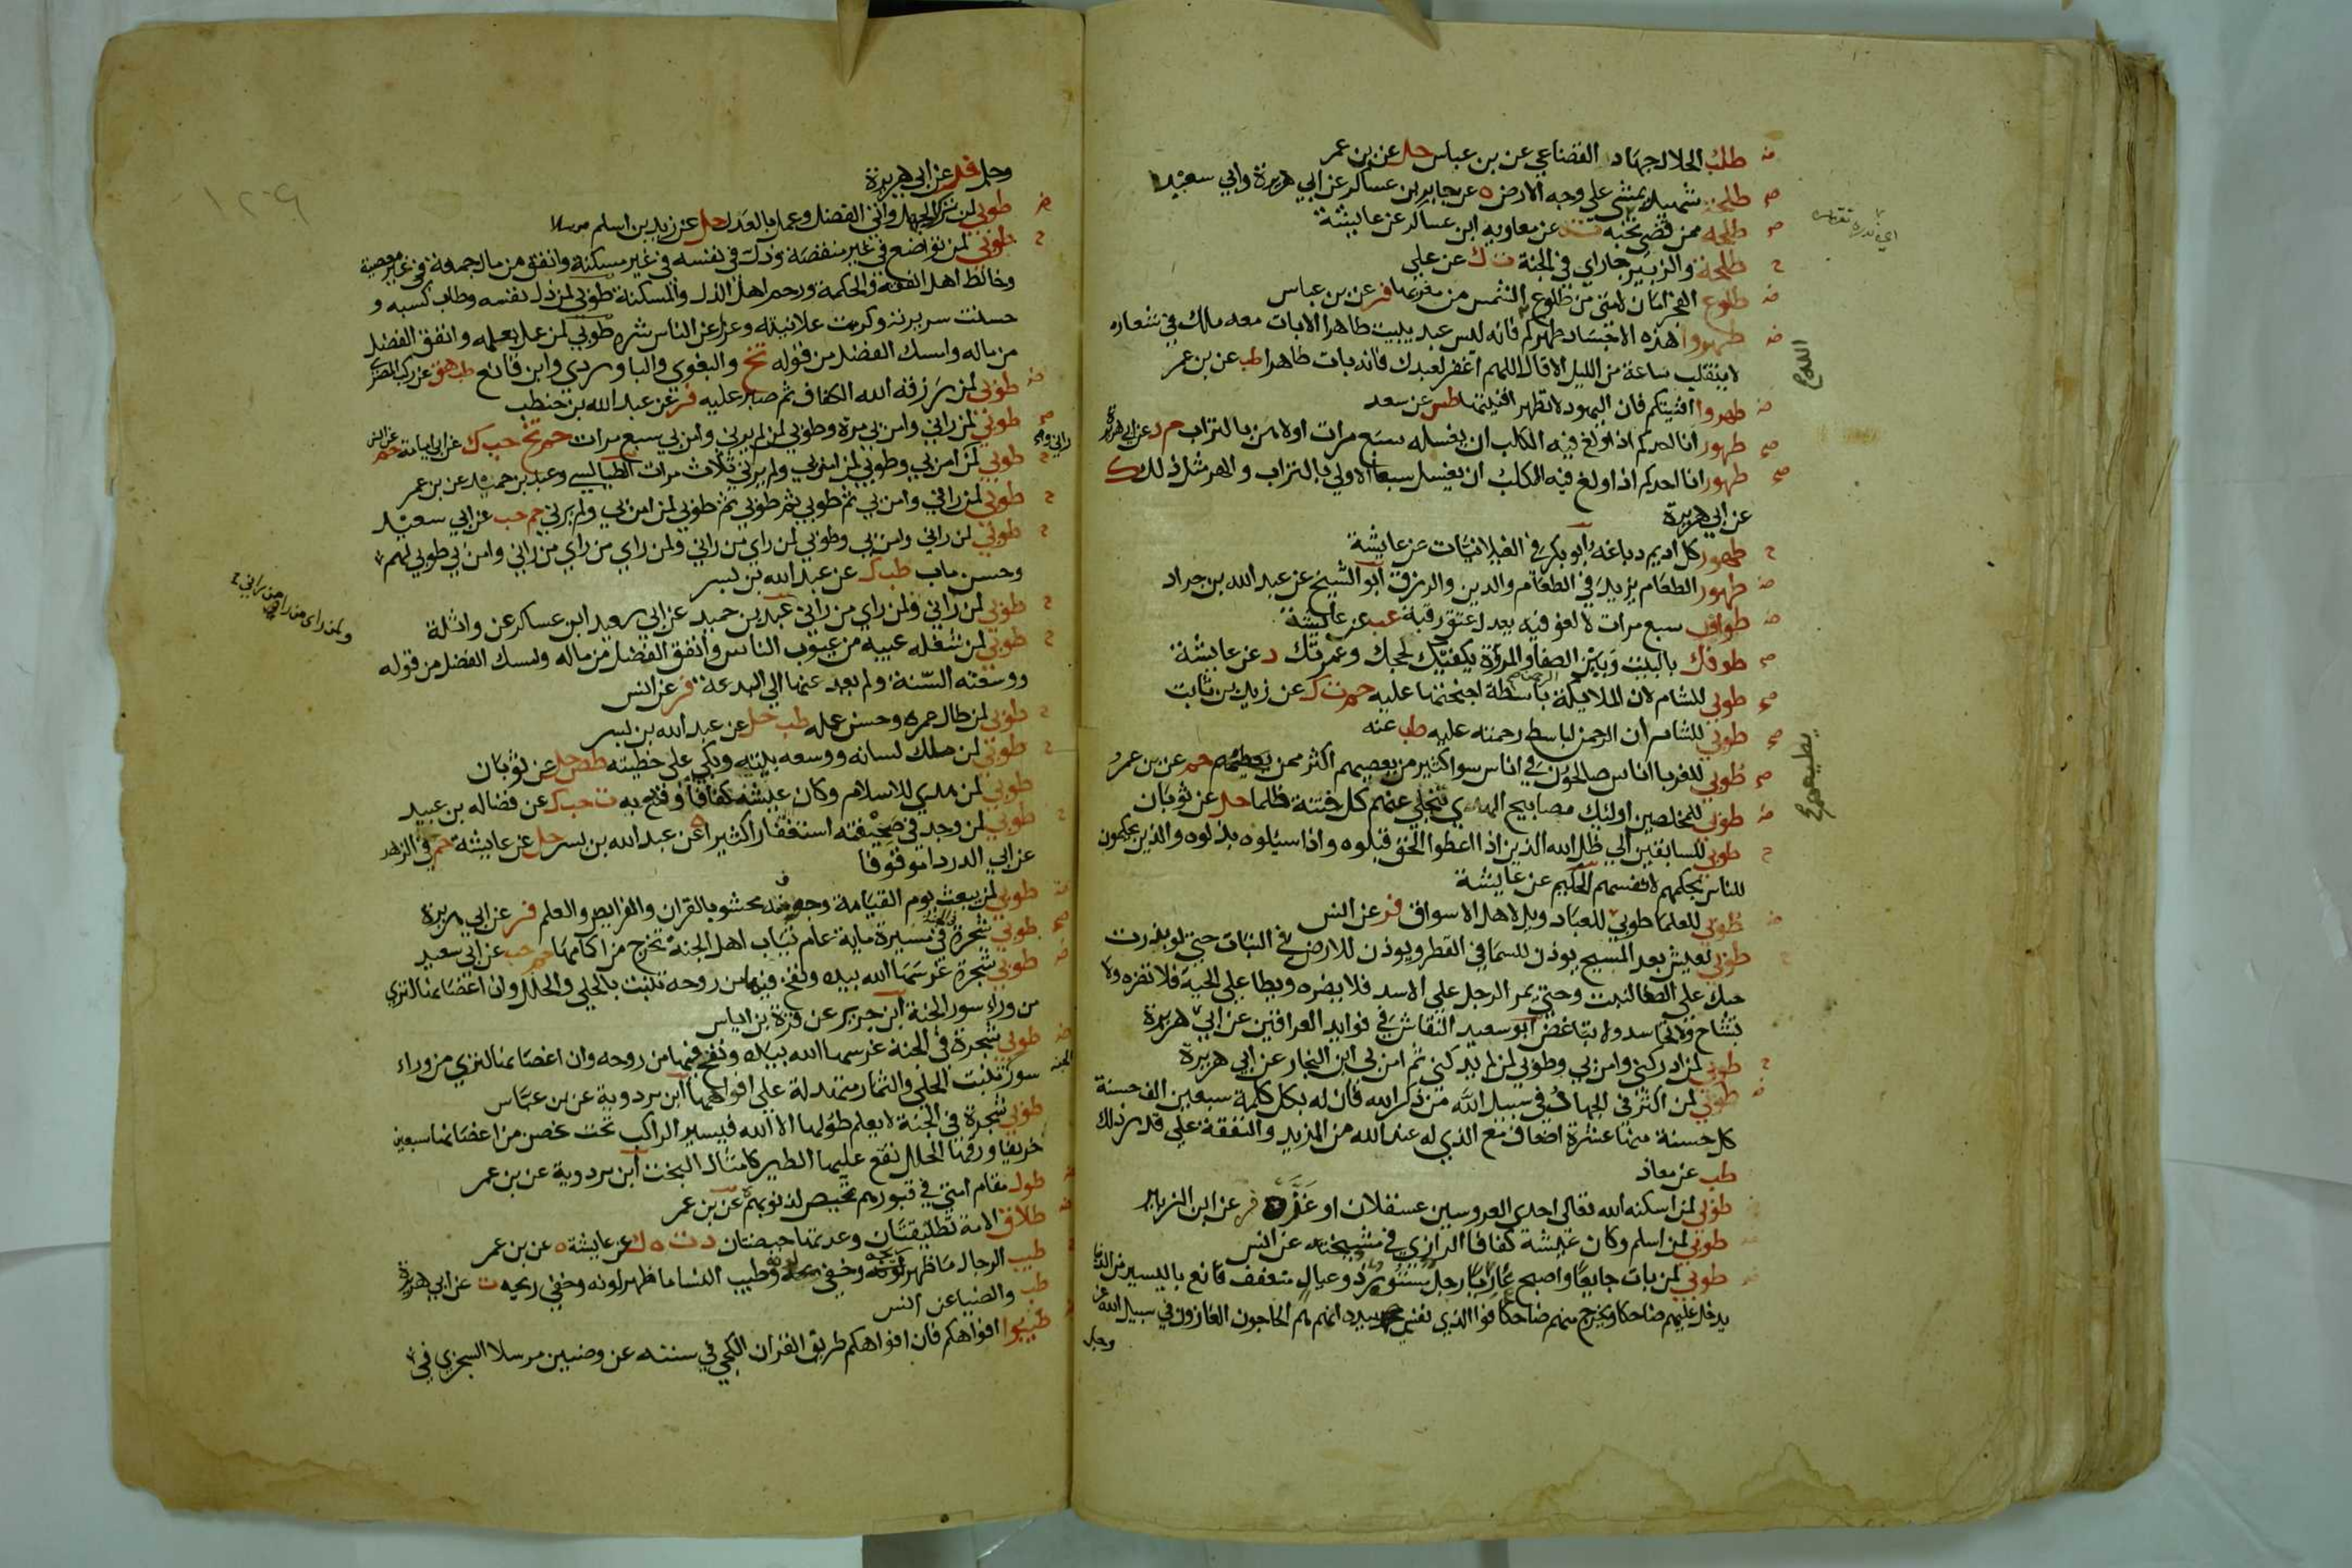 طلب الحلال جهاد القضاعي عن بن عباس حل عن بن عمر
طلحة شهيد يمشي على وجه الارض ه عن جابر بن عساكر عن ابي هريرة وابي سعيد
طلحه ممن قضى نحبه ت ه عن معاوية ابن عساكر عن عايشة
طلحة والزبير جاراي في الجنة ت ك عن علي
طلوع الفجر امان لامتي من طلوع الشمس من مغربها فر عن بن عباس
طهروا هذه الاجساد طهركم فانه ليس عبد يبيت طاهرا الا بات معه ملك في شعاره
لا ينقلب ساعة من الليل الا قال اللهم اغفر لعبدك فانه بات طاهرا طب عن بن عمر
طهروا افنيتكم فان اليهود لا تطهر افنيتها طس عن سعد
طهور انا احدكم اذا ولغ فيه الكلب ان يغسله سبع مرات اولاهن بالتراب م د عن ابي هريرة
طهور انا احدكم اذا ولغ فيه الكلب ان يغسل سبعا الاولى بالتراب والهر مثل ذلك ك
عن ابي هريرة
طهور كل اديم دباغه ابو بكر في الغيلانيات عن عايشة
طهور الطعام يزيد في الطعام والدين والرزق ابو الشيخ عن عبد الله بن جراد
طواف سبع مرات لا لغو فيه يعدل عتق رقبة عب عن عايشة
طوفك بالبيت وبين الصفا والمروة يكفيك لحجك وعمرتك د عن عايشة
طوبى للشام لان الملايكة باسطة اجنحتها عليه حم ت ك عن زيد بن ثابت
طوبى للشام ان الرحمن لباسط رحمته عليه طب عنه
طوبى للغربا اناس صالحون في اناس سوا كثير من يعصيهم اكثر ممن يطيعهم حم عن بن عمرو
طوبى للمخلصين اوليك مصابيح الهدى تنجلي عنهم كل فتنة ظلما حل عن ثوبان
طوبى للسابقين الى ظل الله الذين اذا اعطوا الحق قبلوه واذا سيلوه بذلوه والذين يحكمون
للناس بحكمهم لانفسهم الحكيم عن عايشة
طوبى للعلما طوبى للعباد ويل لاهل الاسواق فر عن انس
طوبى لعيش بعد المسيح يوذن للسما في القطر ويوذن للارض في النبات حتى لو بذرت
حبك على الصفا لنبت وحتى يمر الرجل على الاسد فلا يضره ويطا على الحية فلا تضره ولا
تشاح ولا تحاسد ولا تباغض ابو سعيد النقاش في فوايد العراقيين عن ابي هريرة
طوبى لمن ادركني وامن بي وطوبى لمن لم يدركني ثم امن بي ابن النجار عن ابي هريرة
طوبى لمن اكثر في الجهاد في سبيل الله من ذكر الله فان له بكل كلمة سبعين الف حسنة
كل حسنة منها عشرة اضعاف مع الذي له عند الله من المزيد والنفقة على قدر ذلك
طب عن معاذ
طوبى لمن اسكنه الله تعالى احدى العروسين عسقلان او غزة فر عن ابن الزبير
طوبى لمن اسلم وكان عيشه كفافا الرازي في مشيخته عن انس
طوبى لمن بات جايعا واصبح غازيا رجل مستور ذو عيال متعفف قانع باليسير من الدنيا
يدخل عليهم ضاحكا ويخرج منهم ضاحكا فوا الذي نفسي بيده انهم هم الحاجون الغازون في سبيل الله عز
وجل
وجل فر عن ابي هريرة
طوبى لمن ترك الجهل واتى الفضل وعمل بالعدل حل عن زيد بن اسلم مرسلا
طوبى لمن تواضع في غير منقصة وذل في نفسه في غير مسكنة وانفق من مال جمعه في غير معصية
وخالط اهل الفقه والحكمة ورحم اهل الذل والمسكنة طوبى لمن ذل نفسه وطاب كسبه و
حسنت سريرته وكرمت علانيته وعزل عن الناس شره طوبى لمن عمل بعلمه وانفق الفضل
من ماله وامسك الفضل من قوله تخ والبغوي والباوردي وابن قانع طب هق عن ركب المصري
طوبى لمن رزقه الله الكفاف ثم صبر عليه فر عن عبد الله بن حنطب
طوبى لمن راني وامن بي مرة وطوبى لمن لم يرني وامن بي سبع مرات حم تخ حب ك عن ابي امامة حم عن انس
طوبى لمن امن بي وطوبى لمن امن بي ولم يرني ثلاث مرات الطيالسي وعبد بن حميد عن بن عمر
راني و
طوبى لمن راني وامن بي ثم طوبى ثم طوبى ثم طوبى لمن امن بي ولم يرني حم حب عن ابي سعيد
طوبى لمن راني وامن بي وطوبى لمن راي من راني ولمن راي من راي من راني وامن بي طوبى لهم
وحسن ماب طب ك عن عبد الله بن بسر
طوبى لمن راني ولمن راي من راني عبد بن حميد عن ابي سعيد ابن عساكر عن واثلة
ولمن راى من راى من راني
طوبى لمن شغله عيبه من عيوب الناس وانفق الفضل من ماله وامسك الفضل من قوله
ووسعته السنة ولم يعد عنها الى البدعة فر عن انس
طوبى لمن طال عمره وحسن عمله طب حل عن عبد الله بن بسر
طوبى لمن ملك لسانه ووسعه بيته وبكى على خطيته طص حل عن ثوبان
طوبى لمن هدي للاسلام وكان عيشه كفافا وقنع به ت حب ك عن فضاله بن عبيد
طوبى لمن وجد في صحيفته استغفارا كثيرا ه عن عبد الله بن بسر حل عن عايشة حم في الزهد
عن ابي الدردا موقوفا
طوبى لمن يبعث يوم القيامة وجوفه محشو بالقران والفرايض والعلم فر عن ابي هريرة
طوبى شجرة في الجنة مسيرة ماية عام ثياب اهل الجنة تخرج من اكمامها حم حب عن ابي سعيد
طوبى شجرة غرسها الله بيده ونفخ فيها من روحه تنبت بالحلي والحلل وان اغصانها لترى
من وراء سور الجنة ابن جرير عن قرة بن اياس
طوبى شجرة في الجنة غرسها الله بيده ونفخ فيها من روحه وان اغصانها لترى من وراء
سور الجنه تنبت الحلي والثمار متهدلة على افواهها ابن مردوية عن بن عباس
طوبى شجرة في الجنة لا يعلم طولها الا الله فيسير الراكب تحت غصن من اغصانها سبعين
خريفا ورقها الحلل تقع عليها الطير كامثال البخت ابن مردوية عن بن عمر
طول مقام امتي في قبورهم تمحيص لذنوبهم عن بن عمر
طلاق الامة تطليقتان وعدتها حيضتان د ت ه ك عن عايشة ه عن بن عمر
طيب الرجال ما ظهر ريحه وخفي لونه وطيب النسا ما ظهر لونه وخفي ريحه ت عن ابي هريرة
طب والضيا عن انس
طيبوا افواهكم فان افواهكم طريق القران الكجي في سننه عن وضين مرسلا السجزي في